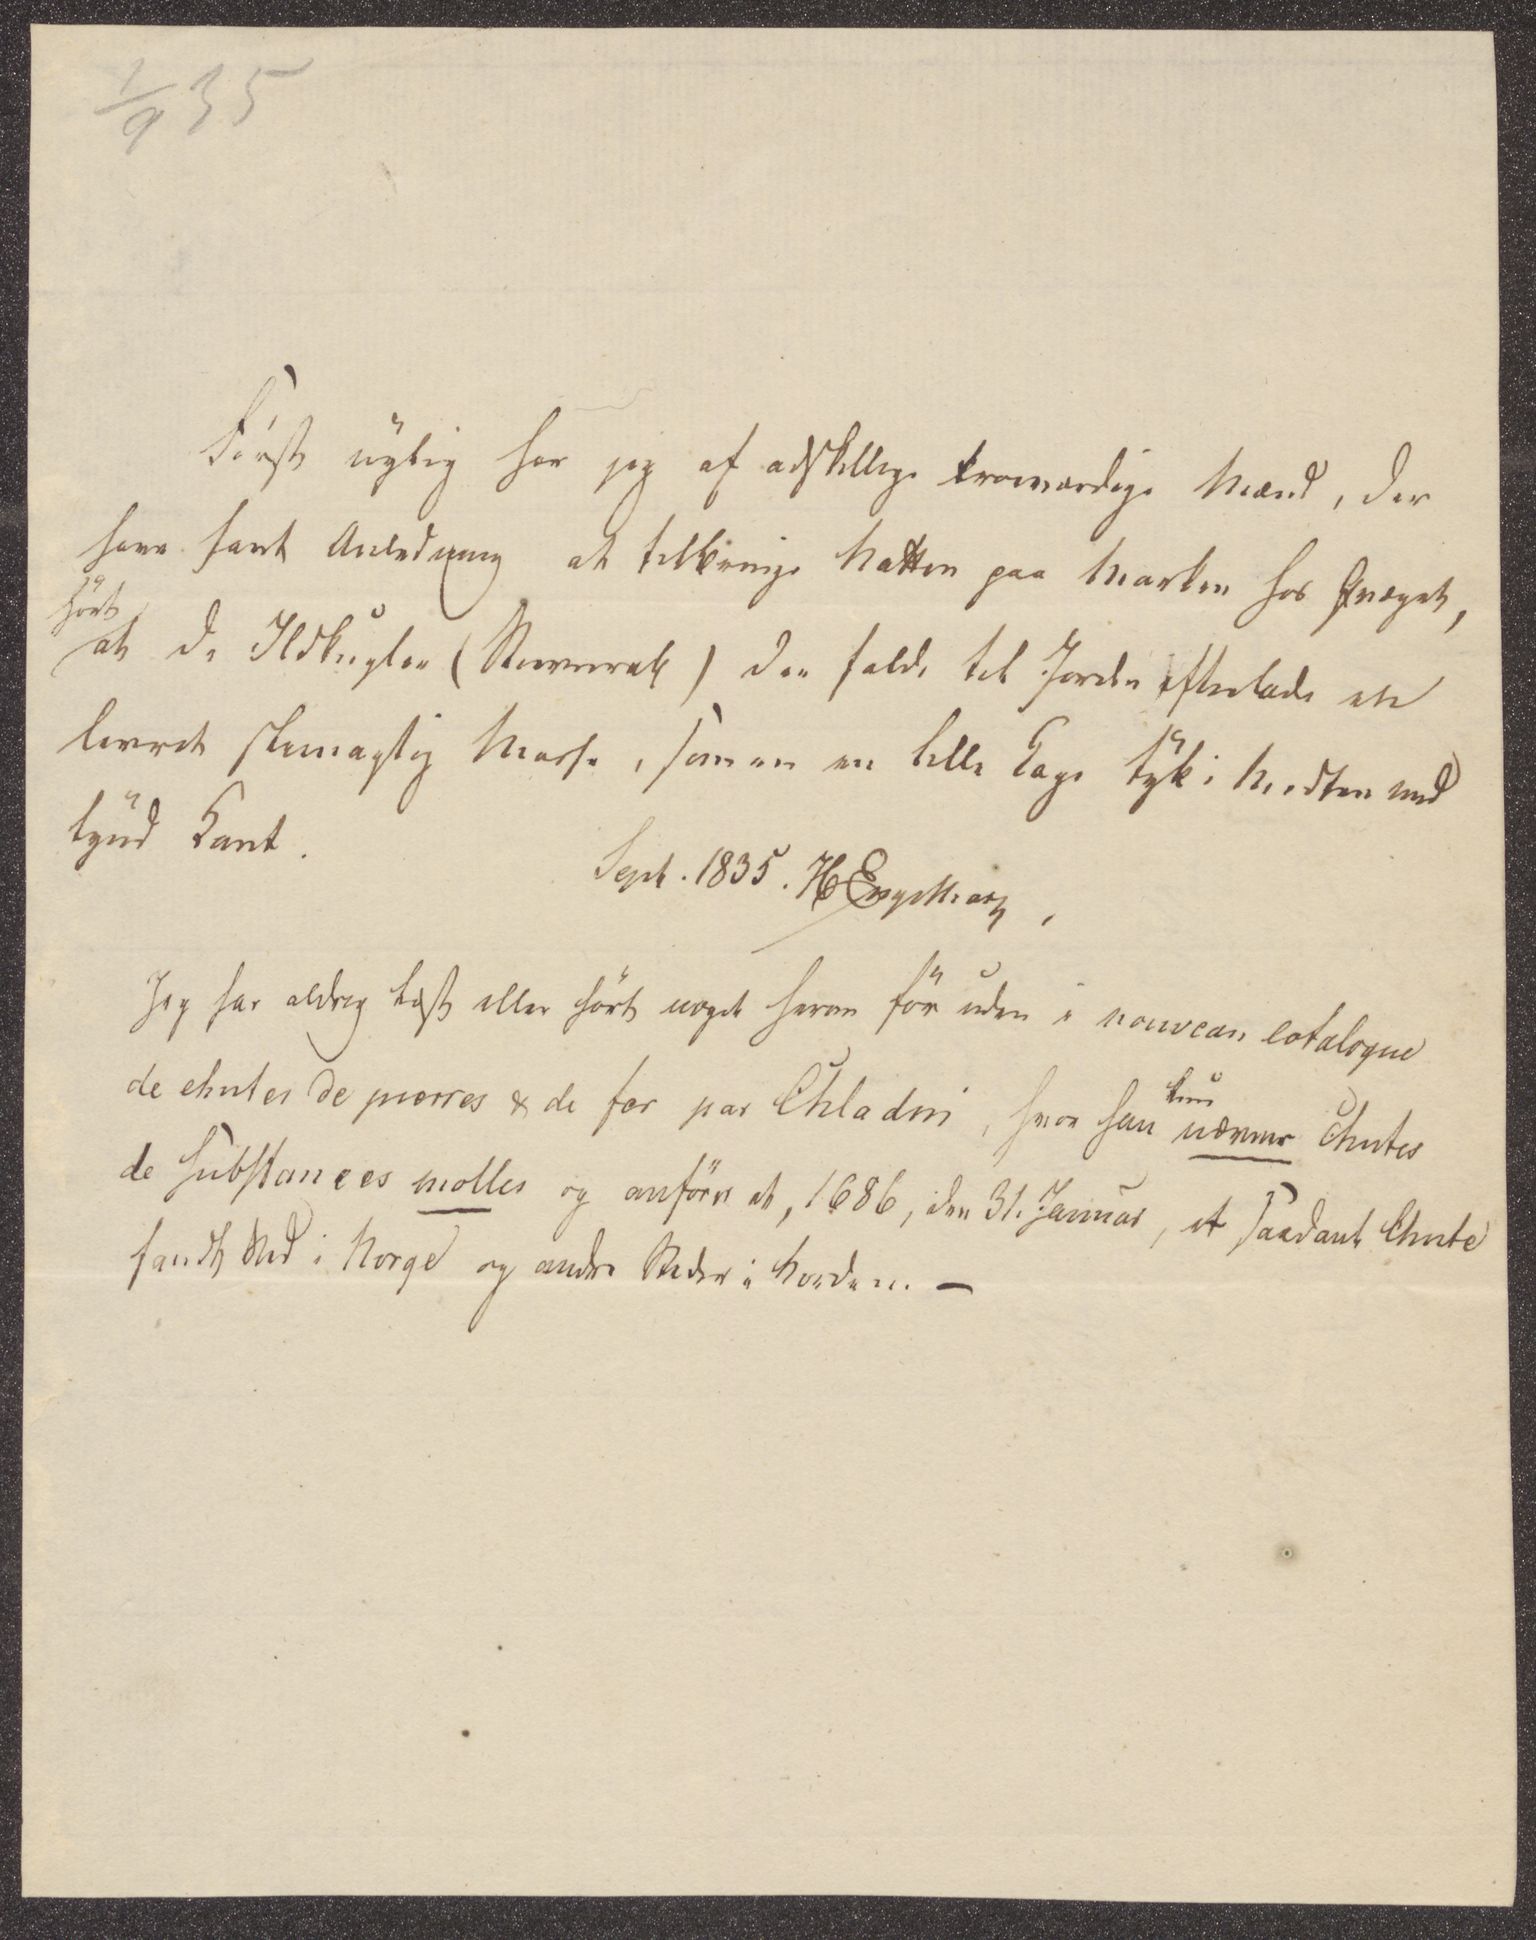 1/9 35
Först nÿlig har jeg af adskillige troeværdige Mænd, der
have havt Anledning at tilbringe Natten paa Marken hos Qvæget,
hört
at de Ildkugler (Stiernerak) der falde til Jorden efterlade en
levret sliimagtig Masse, som en en lille Kage tÿk i Midten med
tÿnd Kant.
Sept. 1835. H Engelhart,
Jeg har aldrig læst eller hört noget herom för uden i nouveau catalogue
de chutes de pierres & de fer par Chladni, hvor han nævner Chutes
kun
de substances molles og anförer at, 1686, den 31. Januar, et saadant Chute
fandt Sted i Norge og andre Steder i Norden. —